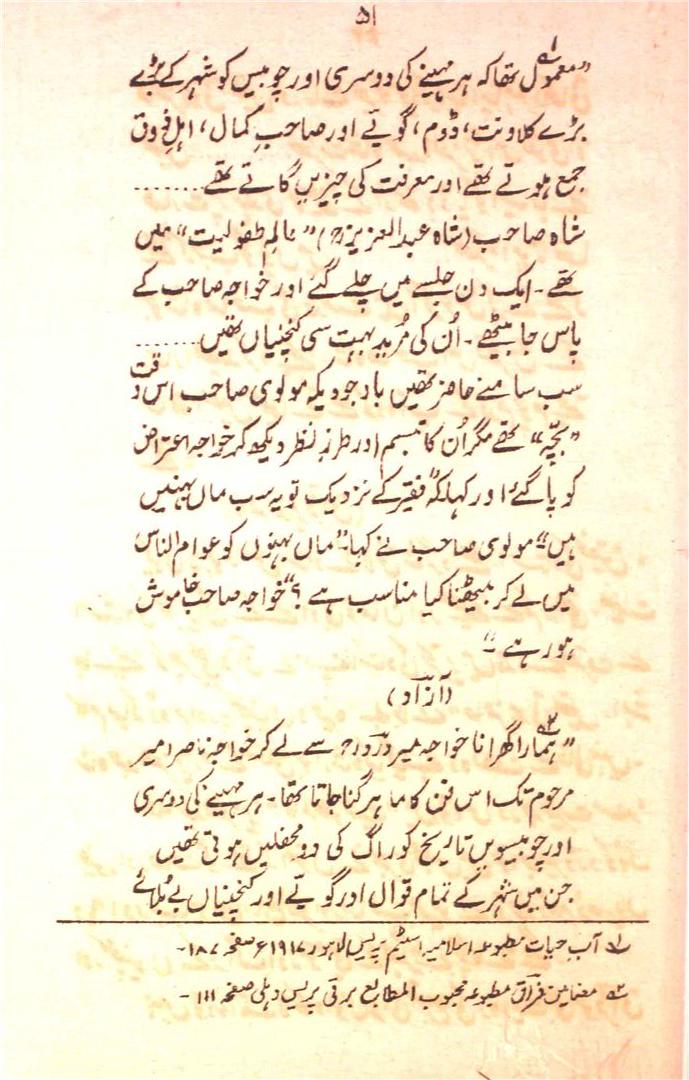 ۵۱
”معمول۱ تھا کہ ہر مہینے کی دوسری اور چوبیس کو شہر کے بڑے
بڑے کلاونت، ڈوم، گویّے اور صاحبِ کمال، اہلِ ذوق
جمع ہوتے تھے اور معرفت کی چیزیں گاتے تھے ........
شاہ صاحب (شاہ عبدالعزیزؒ) ”عالمِ طفولیت“ میں
تھے۔ ایک دن جلسے میں چلے گئے اور خواجہ صاحب کے
پاس جا بیٹھے۔ اُن کی مُرید بہت سی کنچنیاں تھیں ........
سب سامنے حاضر تھیں باوجودیکہ مولوی صاحب اس وقت
”بچّہ“ تھے مگر اُن کا تبسم اور طرزِ نظر دیکھ کر خواجہ اعتراض
کو پا گئے اور کہا کہ ”فقیر کے نزدیک تو یہ سب ماں بہنیں
ہیں“ مولوی صاحب نے کہا ”ماں بہنوں کو عوام الناس
میں لے کر بیٹھنا کیا مناسب ہے؟“ خواجہ صاحب خاموش
ہو رہے“
(آزاد)
”ہمارا۲ گھرانا خواجہ میر دردؒ سے لے کر خواجہ ناصر امیر
مرحوم تک اس فن کا ماہر گنا جاتا تھا۔ ہر مہینے کی دوسری
اور چوبیسویں تاریخ کو راگ کی دو محفلیں ہوتی تھیں
جن میں شہر کے تمام قوال اور گویّے اور کنچنیاں بے بُلائے
۱ آبِ حیات مطبوعہ اسلامیہ اسٹیم پریس لاہور ۱۹۱۷ء صفحہ ۱۸۷۔
۲ مضامین فراق مطبوعہ محبوب المطابع برقی پریس دہلی صفحہ ۱۱۱۔